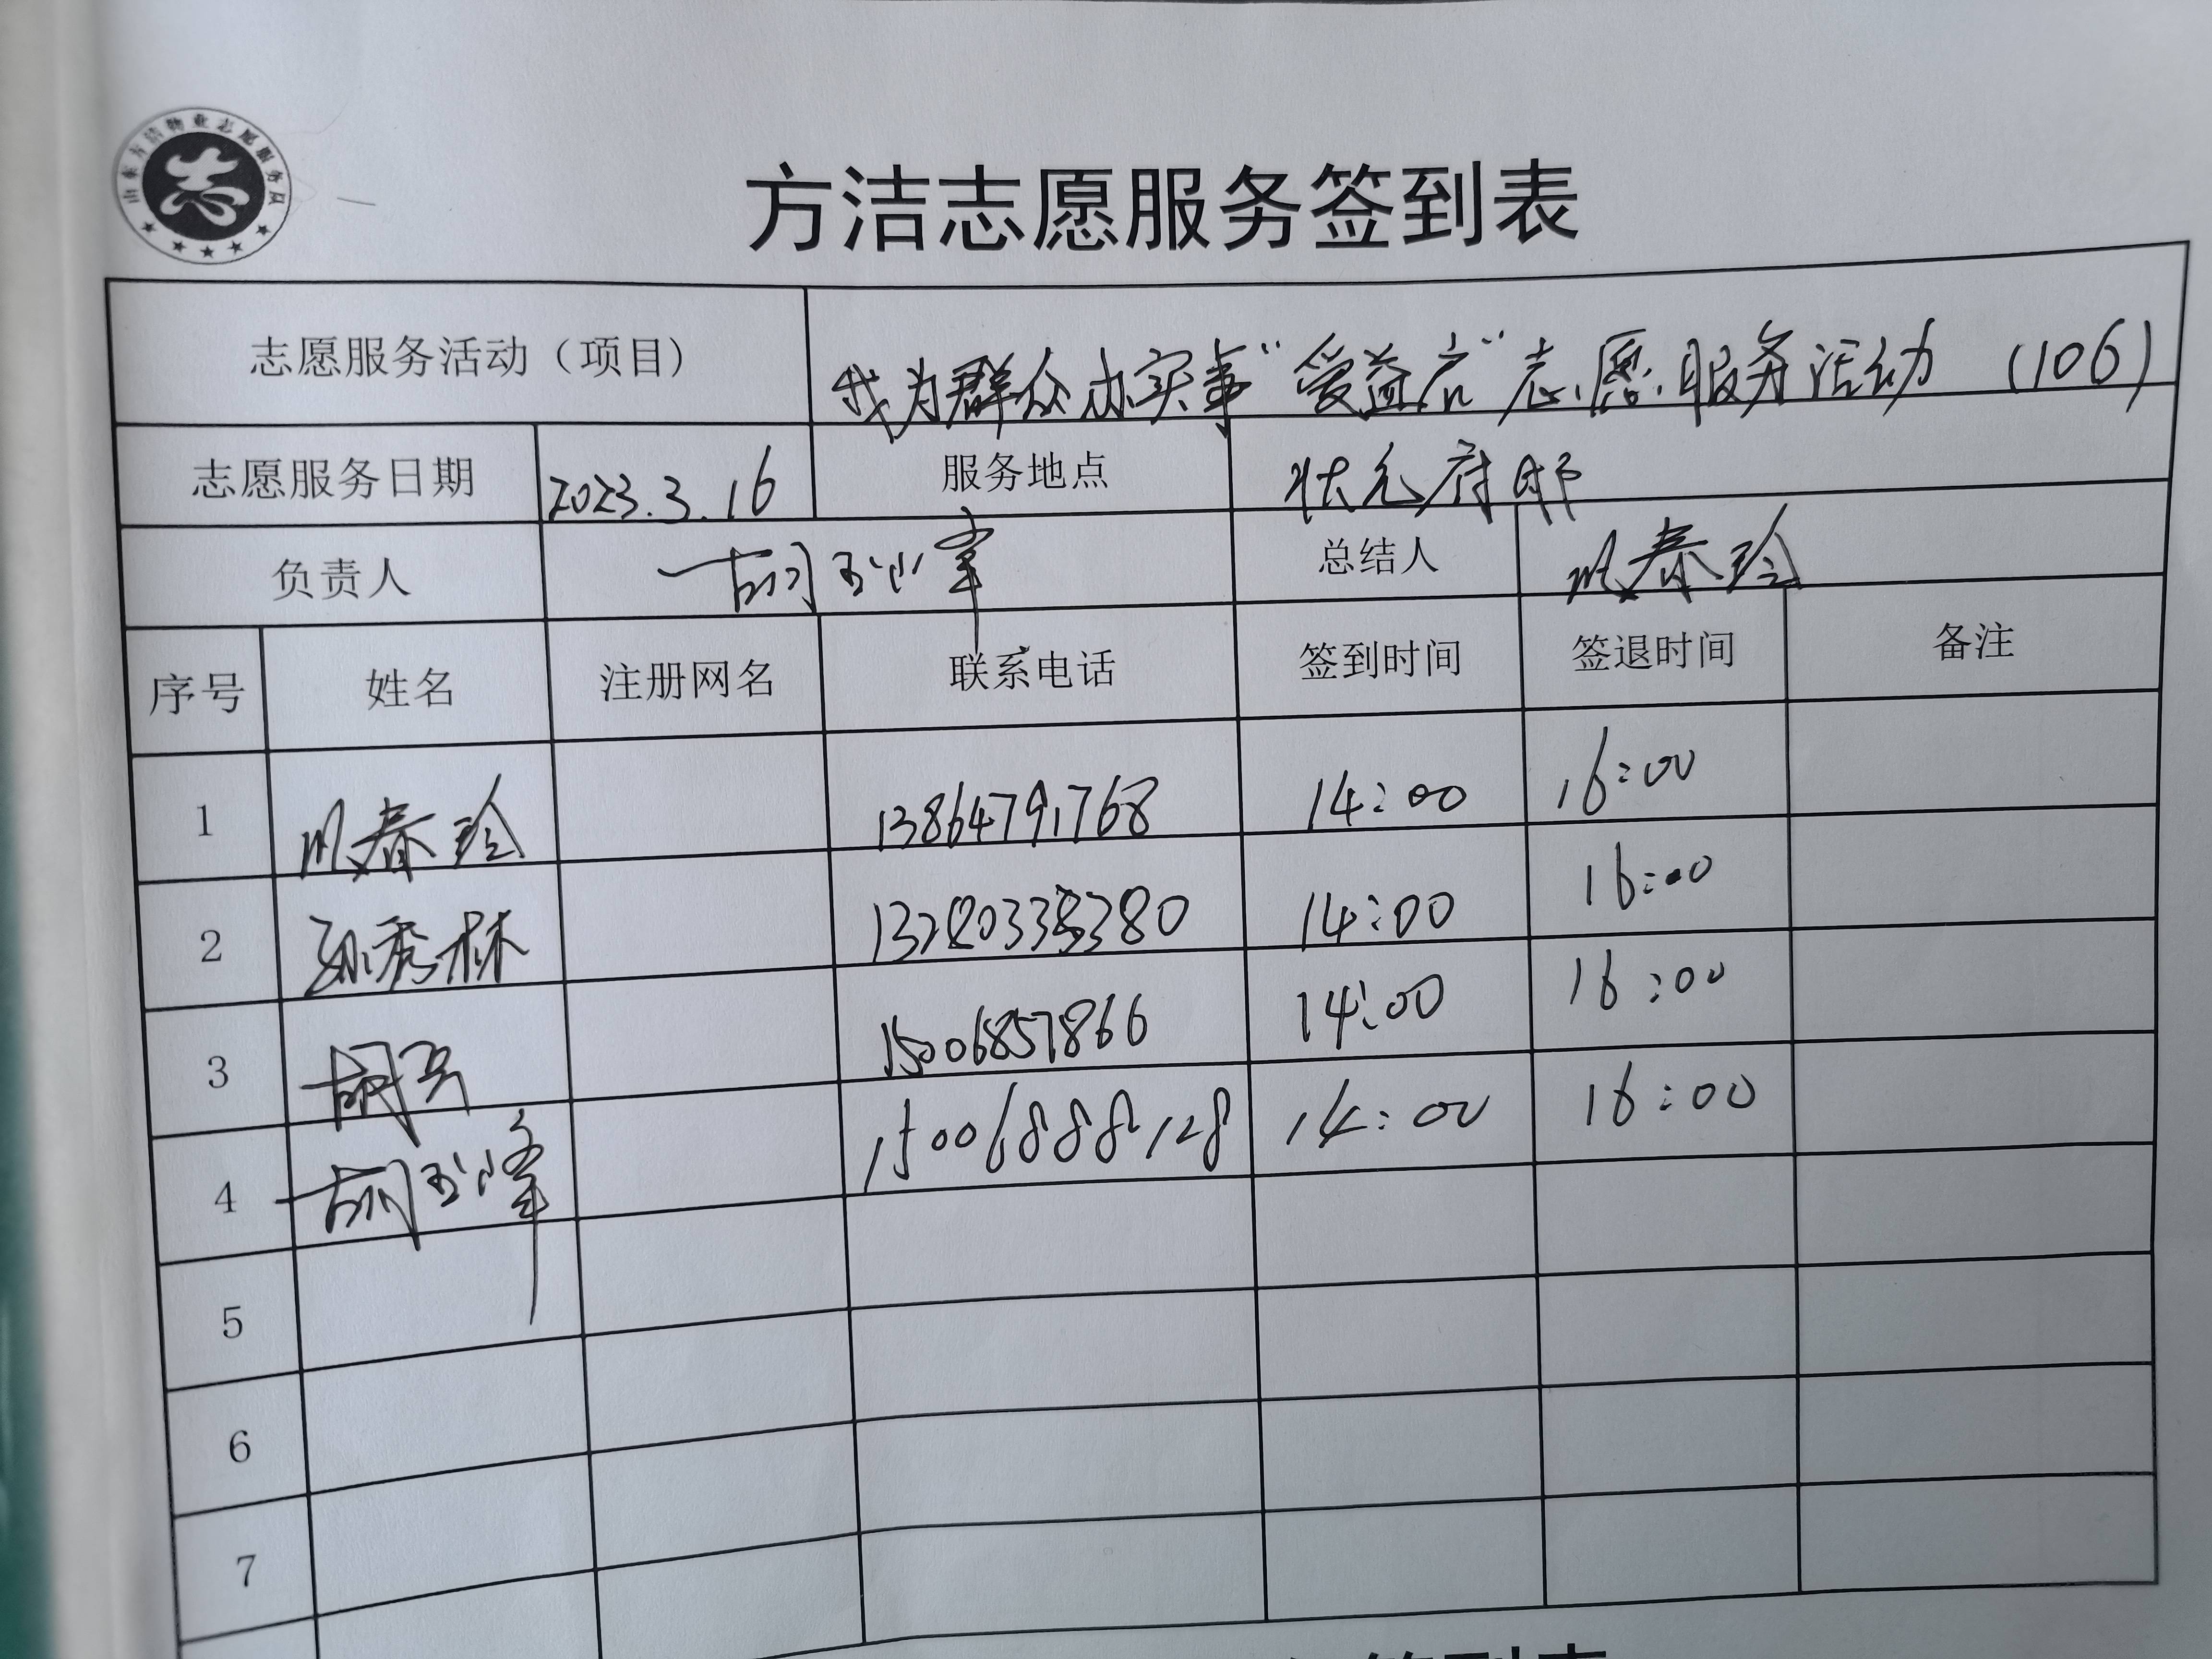 山东方洁物业志愿服务队
方洁志愿服务签到表
志愿服务活动（项目） 我为群众办实事“爱益启”志愿服务活动 (106)
志愿服务日期 2023.3.16 服务地点 状元府邸
负责人 胡玉峰 总结人 春玲
序号 姓名 注册网名 联系电话 签到时间 签退时间 备注
1 春玲 13864791768 14:00 16:00
2 孙秀林 14:00 16:00
3 胡兵 15006857866 14:00 16:00
4 胡玉峰 15006888128 14:00 16:00
5
6
7